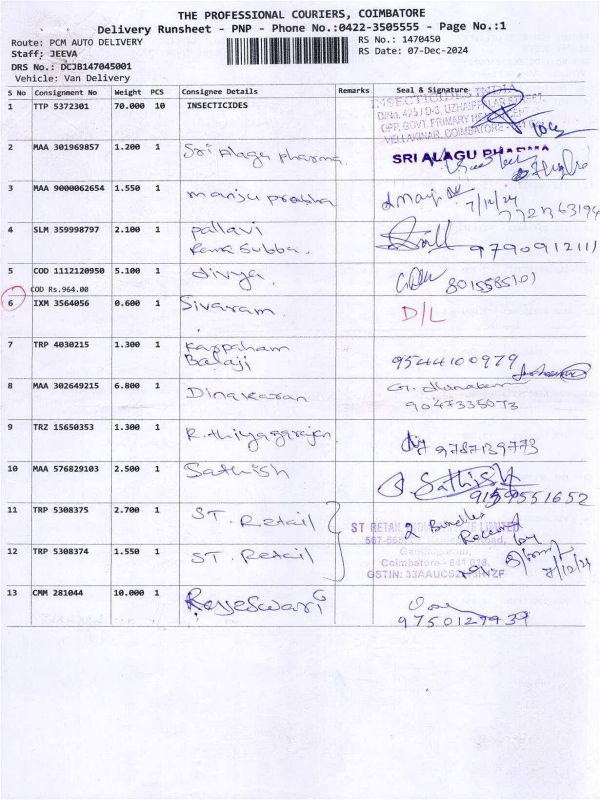 THE PROFESSIONAL COURIERS, COIMBATORE
Delivery Runsheet - PNP - Phone No.:0422-3505555 - Page No.:1
Route: PCM AUTO DELIVERY
RS No.: 1470450
Staff: JEEVA
RS Date: 07-Dec-2024
DRS No.: DCJB147045001
Vehicle: Van Delivery
S No Consignment No Weight PCS Consignee Details Remarks Seal & Signature
1 TTP 5372301 70.000 10 INSECTICIDES
INSECTICIDES INDIA
OPP. GOVT. PRIMARY
VELLAKINAR, COIMBATORE
2 MAA 301969857 1.200 1 Sri Alagu pharma
SRI ALAGU PHARMA
3 MAA 9000062654 1.550 1 manju prabha
7/12/24
4 SLM 359998797 2.100 1 pallavi
Rama Subba.
9790912111
5 COD 1112120950 5.100 1 divya
8015585101
COD Rs.964.00
6 IXM 3564056 0.600 1 Sivaram
D/L
7 TRP 4030215 1.300 1 Karpaham
Balaji
9544100979
8 MAA 302649215 6.800 1 Dinakaran
9047335073
9 TRZ 15650353 1.300 1 R.thiyagarajan
9787139773
10 MAA 576829103 2.500 1 Sathish
Sathish
11 TRP 5308375 2.700 1 ST. Retail
ST RETAIL LIMITED
2 Bundles
Received
by
12 TRP 5308374 1.550 1 ST. Retail
Coimbatore - 641
GSTIN: 33AAUC
7/12/24
13 CMM 281044 10.000 1 Rajeswari